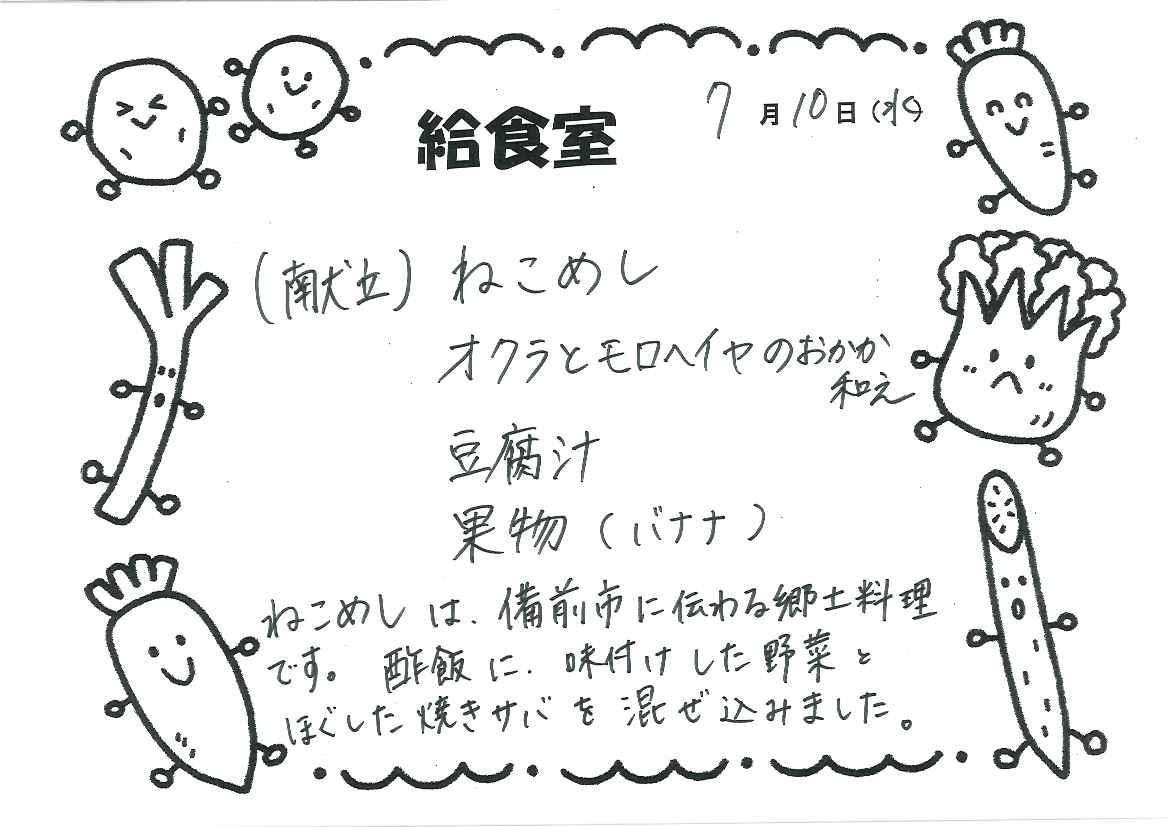 給食室
7月10日(水)
(献立) ねこめし
オクラとモロヘイヤのおかか
和え
豆腐汁
果物 (バナナ)
ねこめしは、備前市に伝わる郷土料理
です。酢飯に、味付けした野菜と
ほぐした焼きサバを混ぜ込みました。